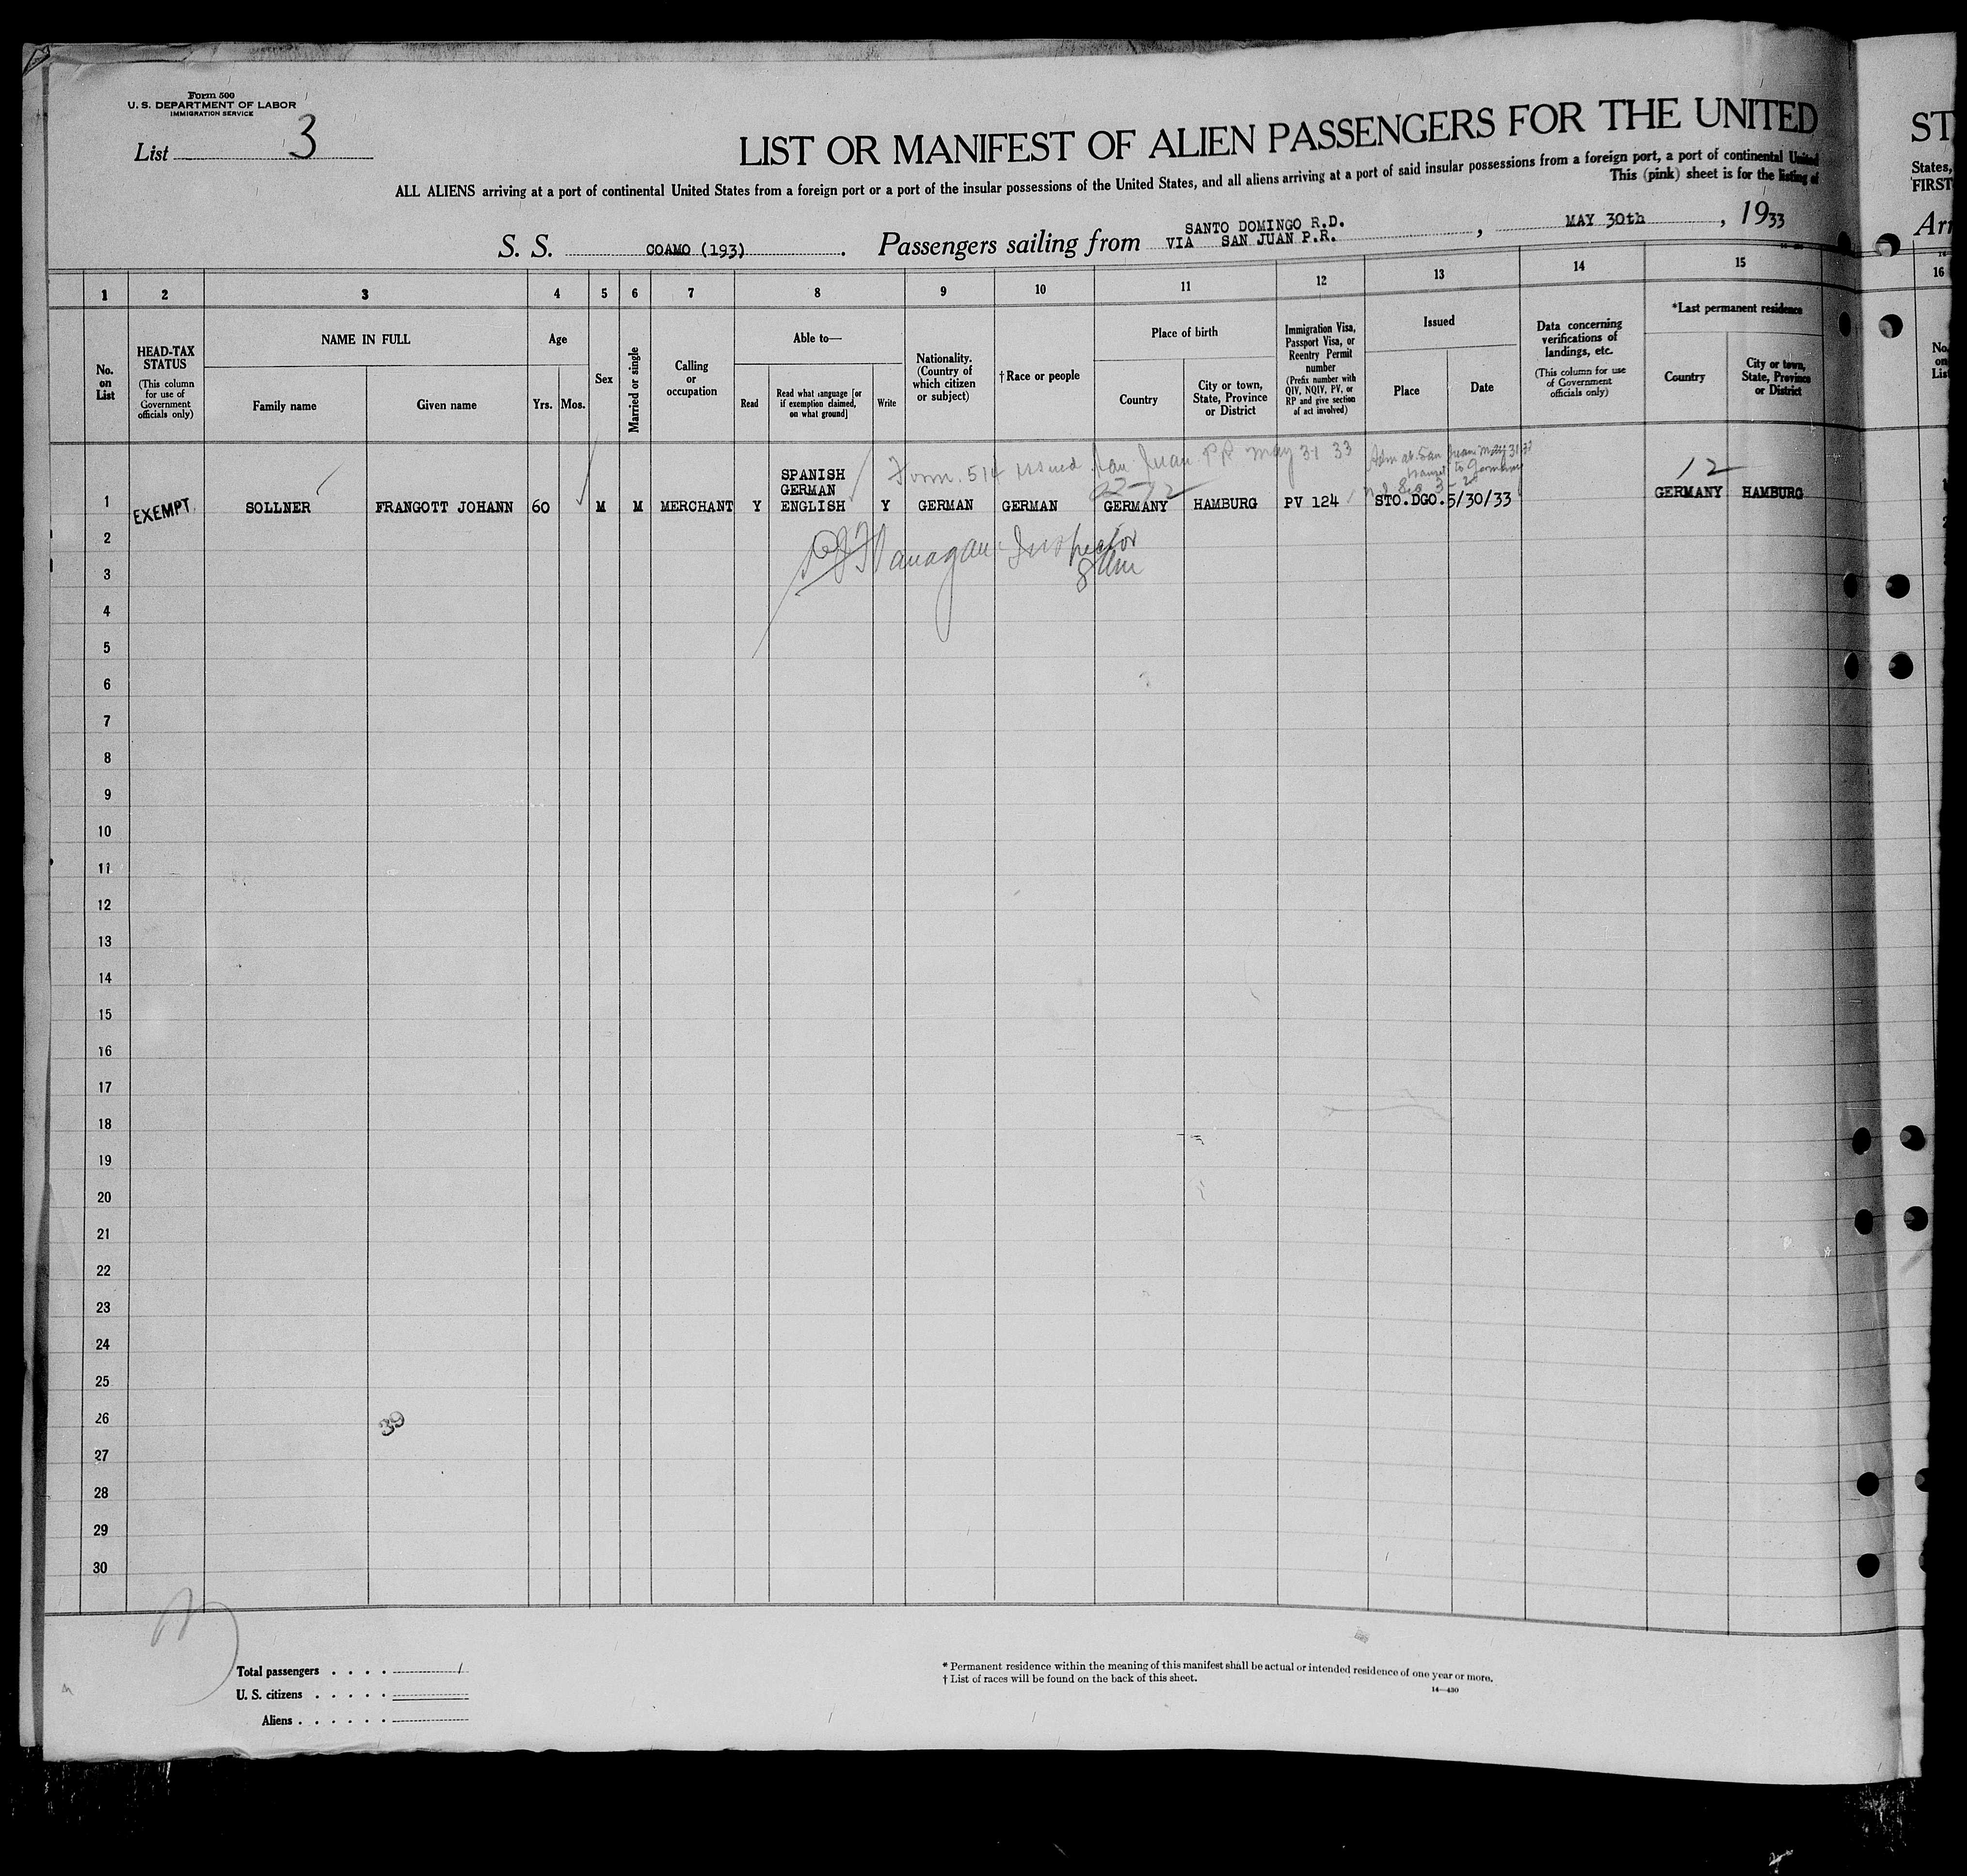 Form 500
U. S. DEPARTMENT OF LABOR
IMMIGRATION SERVICE
List 3
LIST OR MANIFEST OF ALIEN PASSENGERS FOR THE UNITED
ST
ALL ALIENS arriving at a port of continental United States from a foreign port or a port of the insular possessions of the United States, and all aliens arriving at a port of said insular possessions from a foreign port, a port of continental United
States,
This (pink) sheet is for the listing of
FIRST
S. S. COAMO (193). Passengers sailing from SANTO DOMINGO R.D. VIA SAN JUAN P.R., MAY 30th, 1933
Arr
1 2 3 4 5 6 7 8 9 10 11 12 13 14 15 16
No. on List
HEAD-TAX STATUS
(This column for use of Government officials only)
NAME IN FULL
Family name
Given name
Age
Yrs. Mos.
Sex
Married or single
Calling or occupation
Able to—
Read
Read what language [or if exemption claimed, on what ground]
Write
Nationality. (Country of which citizen or subject)
†Race or people
Place of birth
Country
City or town, State, Province or District
Immigration Visa, Passport Visa, or Reentry Permit number
(Prefix number with QIV, NQIV, PV, or RP and give section of act involved)
Issued
Place
Date
Data concerning verifications of landings, etc.
(This column for use of Government officials only)
*Last permanent residence
Country
City or town, State, Province or District
No. on List
Form. 514 issued San Juan PR May 31 33
Adm at San Juan May 31 33
transit to Germany
12
1 EXEMPT SOLLNER FRANGOTT JOHANN 60 M M MERCHANT Y SPANISH GERMAN ENGLISH Y GERMAN GERMAN GERMANY HAMBURG PV 124 STO.DGO. 5/30/33 GERMANY HAMBURG
Flanagan Inspector
2
3
4
5
6
7
8
9
10
11
12
13
14
15
16
17
18
19
20
21
22
23
24
25
26
39
27
28
29
30
Total passengers . . . . 1
U. S. citizens . . . . .
Aliens . . . . . .
* Permanent residence within the meaning of this manifest shall be actual or intended residence of one year or more.
† List of races will be found on the back of this sheet.
14—430